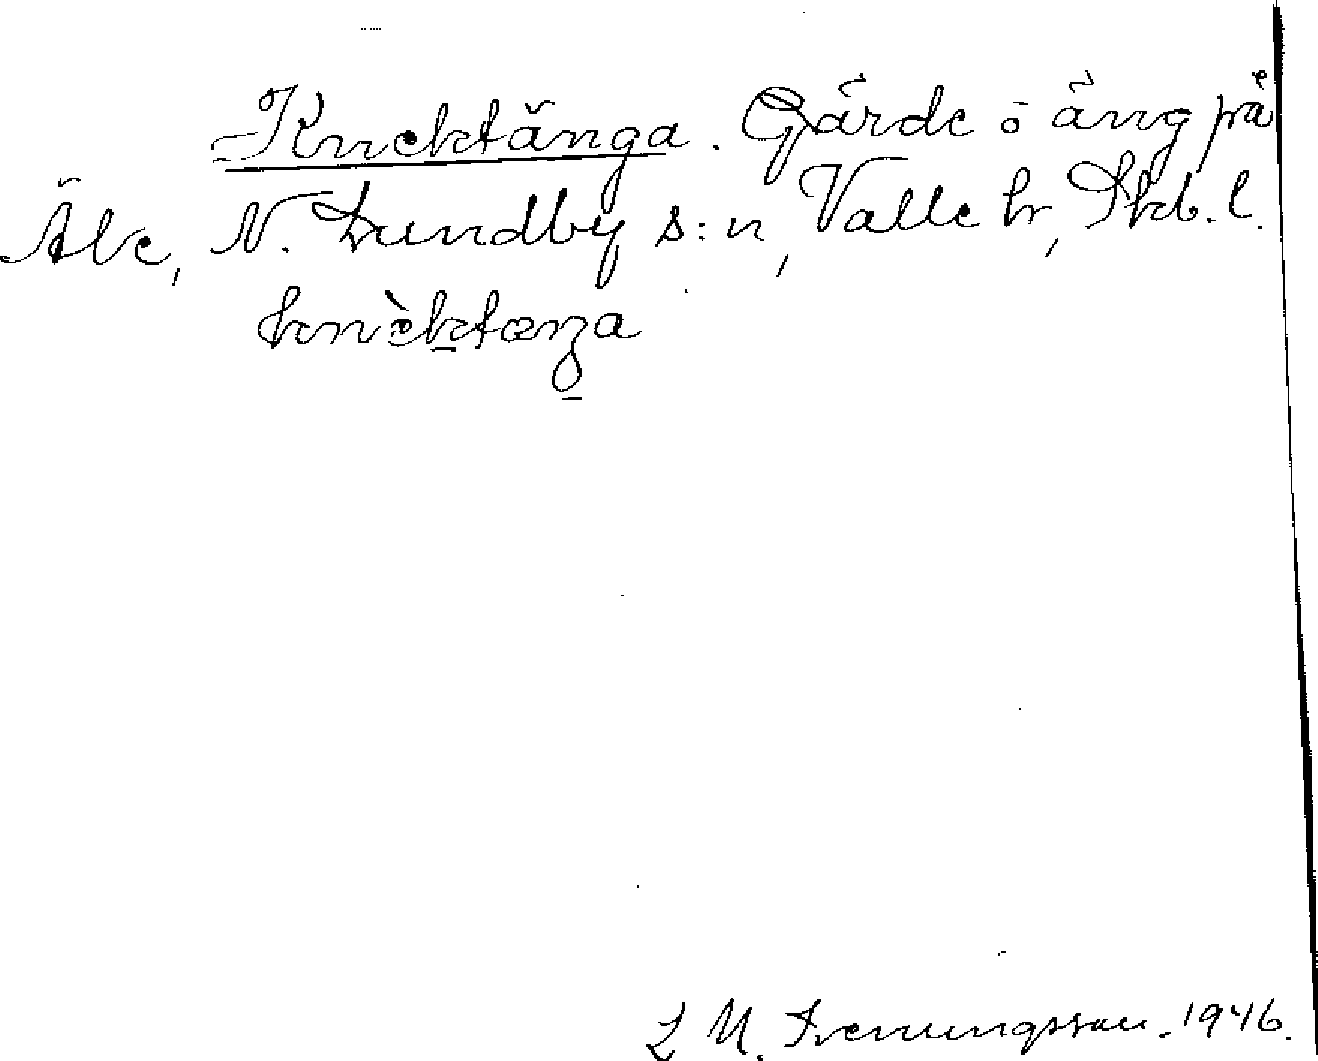 =Knektänga. Gärde o äng på
Älve, N. Lundby s:n, Valle hr, Skb. l.
knèktæŋa
L M. Svenungsson. 1946.